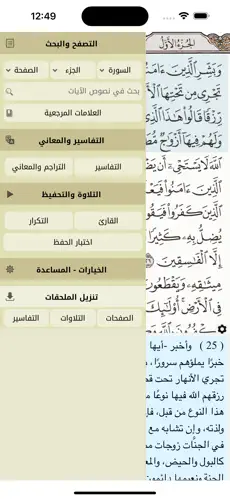 12:49
التصفح والبحث
السورة
الجزء
الصفحة
بحث في نصوص الآيات
العلامات المرجعية
التفاسير والمعاني
التفاسير
التراجم والمعاني
التلاوة والتحفيظ
القارئ
التكرار
اختبار الحفظ
الخيارات - المساعدة
تنزيل الملحقات
الصفحات
التلاوات
التفاسير
الجزء الأول
وَبَشِّرِ ٱلَّذِينَ ءَامَنُ
تَجْرِي مِن تَحْتِهَا ٱلْأ
رِّزْقًا قَالُوا۟ هَٰذَا ٱلَّذِ
وَلَهُمْ فِيهَآ أَزْوَٰجٌ مُّطَ
ٱللَّهَ لَا يَسْتَحْىِۦٓ أَن يَض
ٱلَّذِينَ ءَامَنُوا۟ فَيَع
ٱلَّذِينَ كَفَرُوا۟ فَيَقُو
يُضِلُّ بِهِۦ كَثِيرًا
إِلَّا ٱلْفَٰسِقِينَ
مِيثَٰقِهِۦ وَيَقْطَعُون
فِى ٱلْأَرْضِ أُو۟لَٰٓئِكَ
(25) وأخبر -أيها
خبرًا يملؤهم سرورًا،
تجري الأنهار تحت ق
رزقهم الله فيها نوعًا م
هذا النوع من قبل، فإ
ولذته، وإن تشابه مع
في الجنَّات زوجات مط
كالبول والحيض، والمع
الجنة ونعيمها دائمون